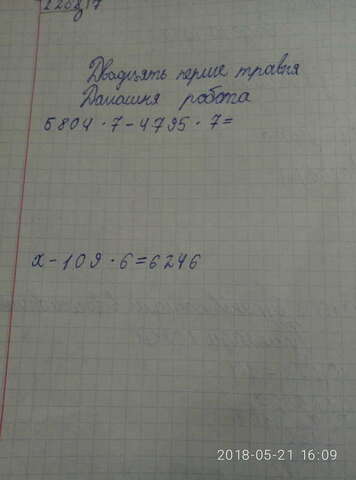 Двадцять перше травня
Домашня робота
5804 · 7 - 4795 · 7 =
х - 109 · 6 = 6246
2018-05-21 16:09